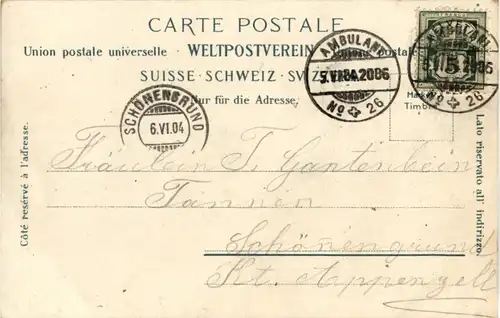 CARTE POSTALE
Union postale universelle • WELTPOSTVEREIN postale
SUISSE • SCHWEIZ • SVIZ
Nur für die Adresse.
AMBULANT
5.VI.04.2086
No 26
AMBULANT
5.VI. 086
No 26
5
SCHÖNENGRUND
6.VI.04
Timbre
Côté reservé à l'adresse.
Lato riservato all' indirizzo
Fräulein T. Gantenbein
Tannen
Schönengrund
Kt. Appenzell